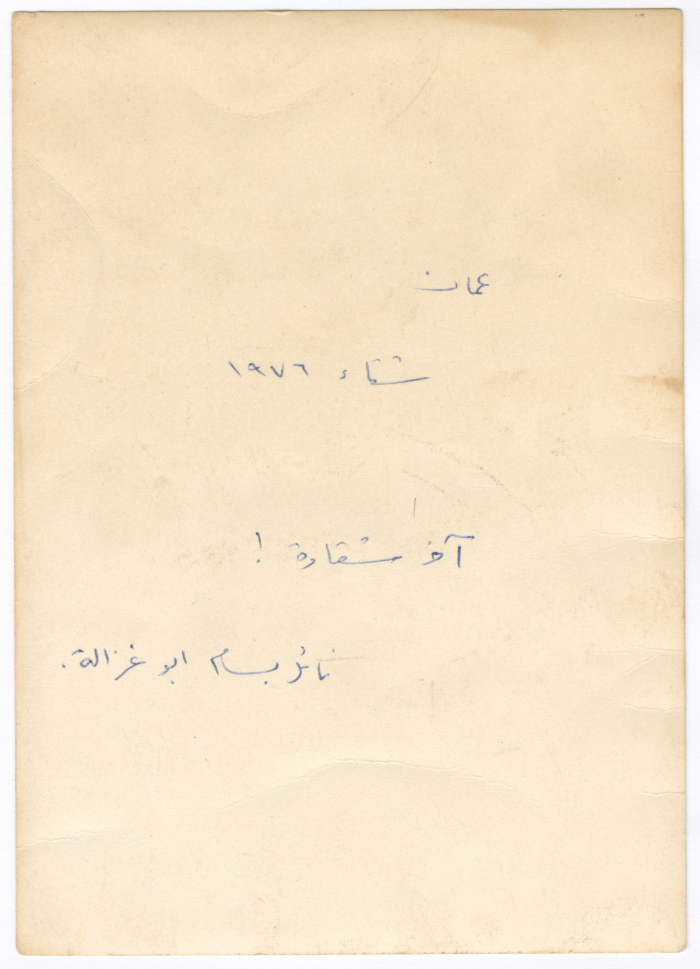 عمان
شتاء ١٩٧٦
آخر شقاوة !
نائل بسام ابو غزالة .